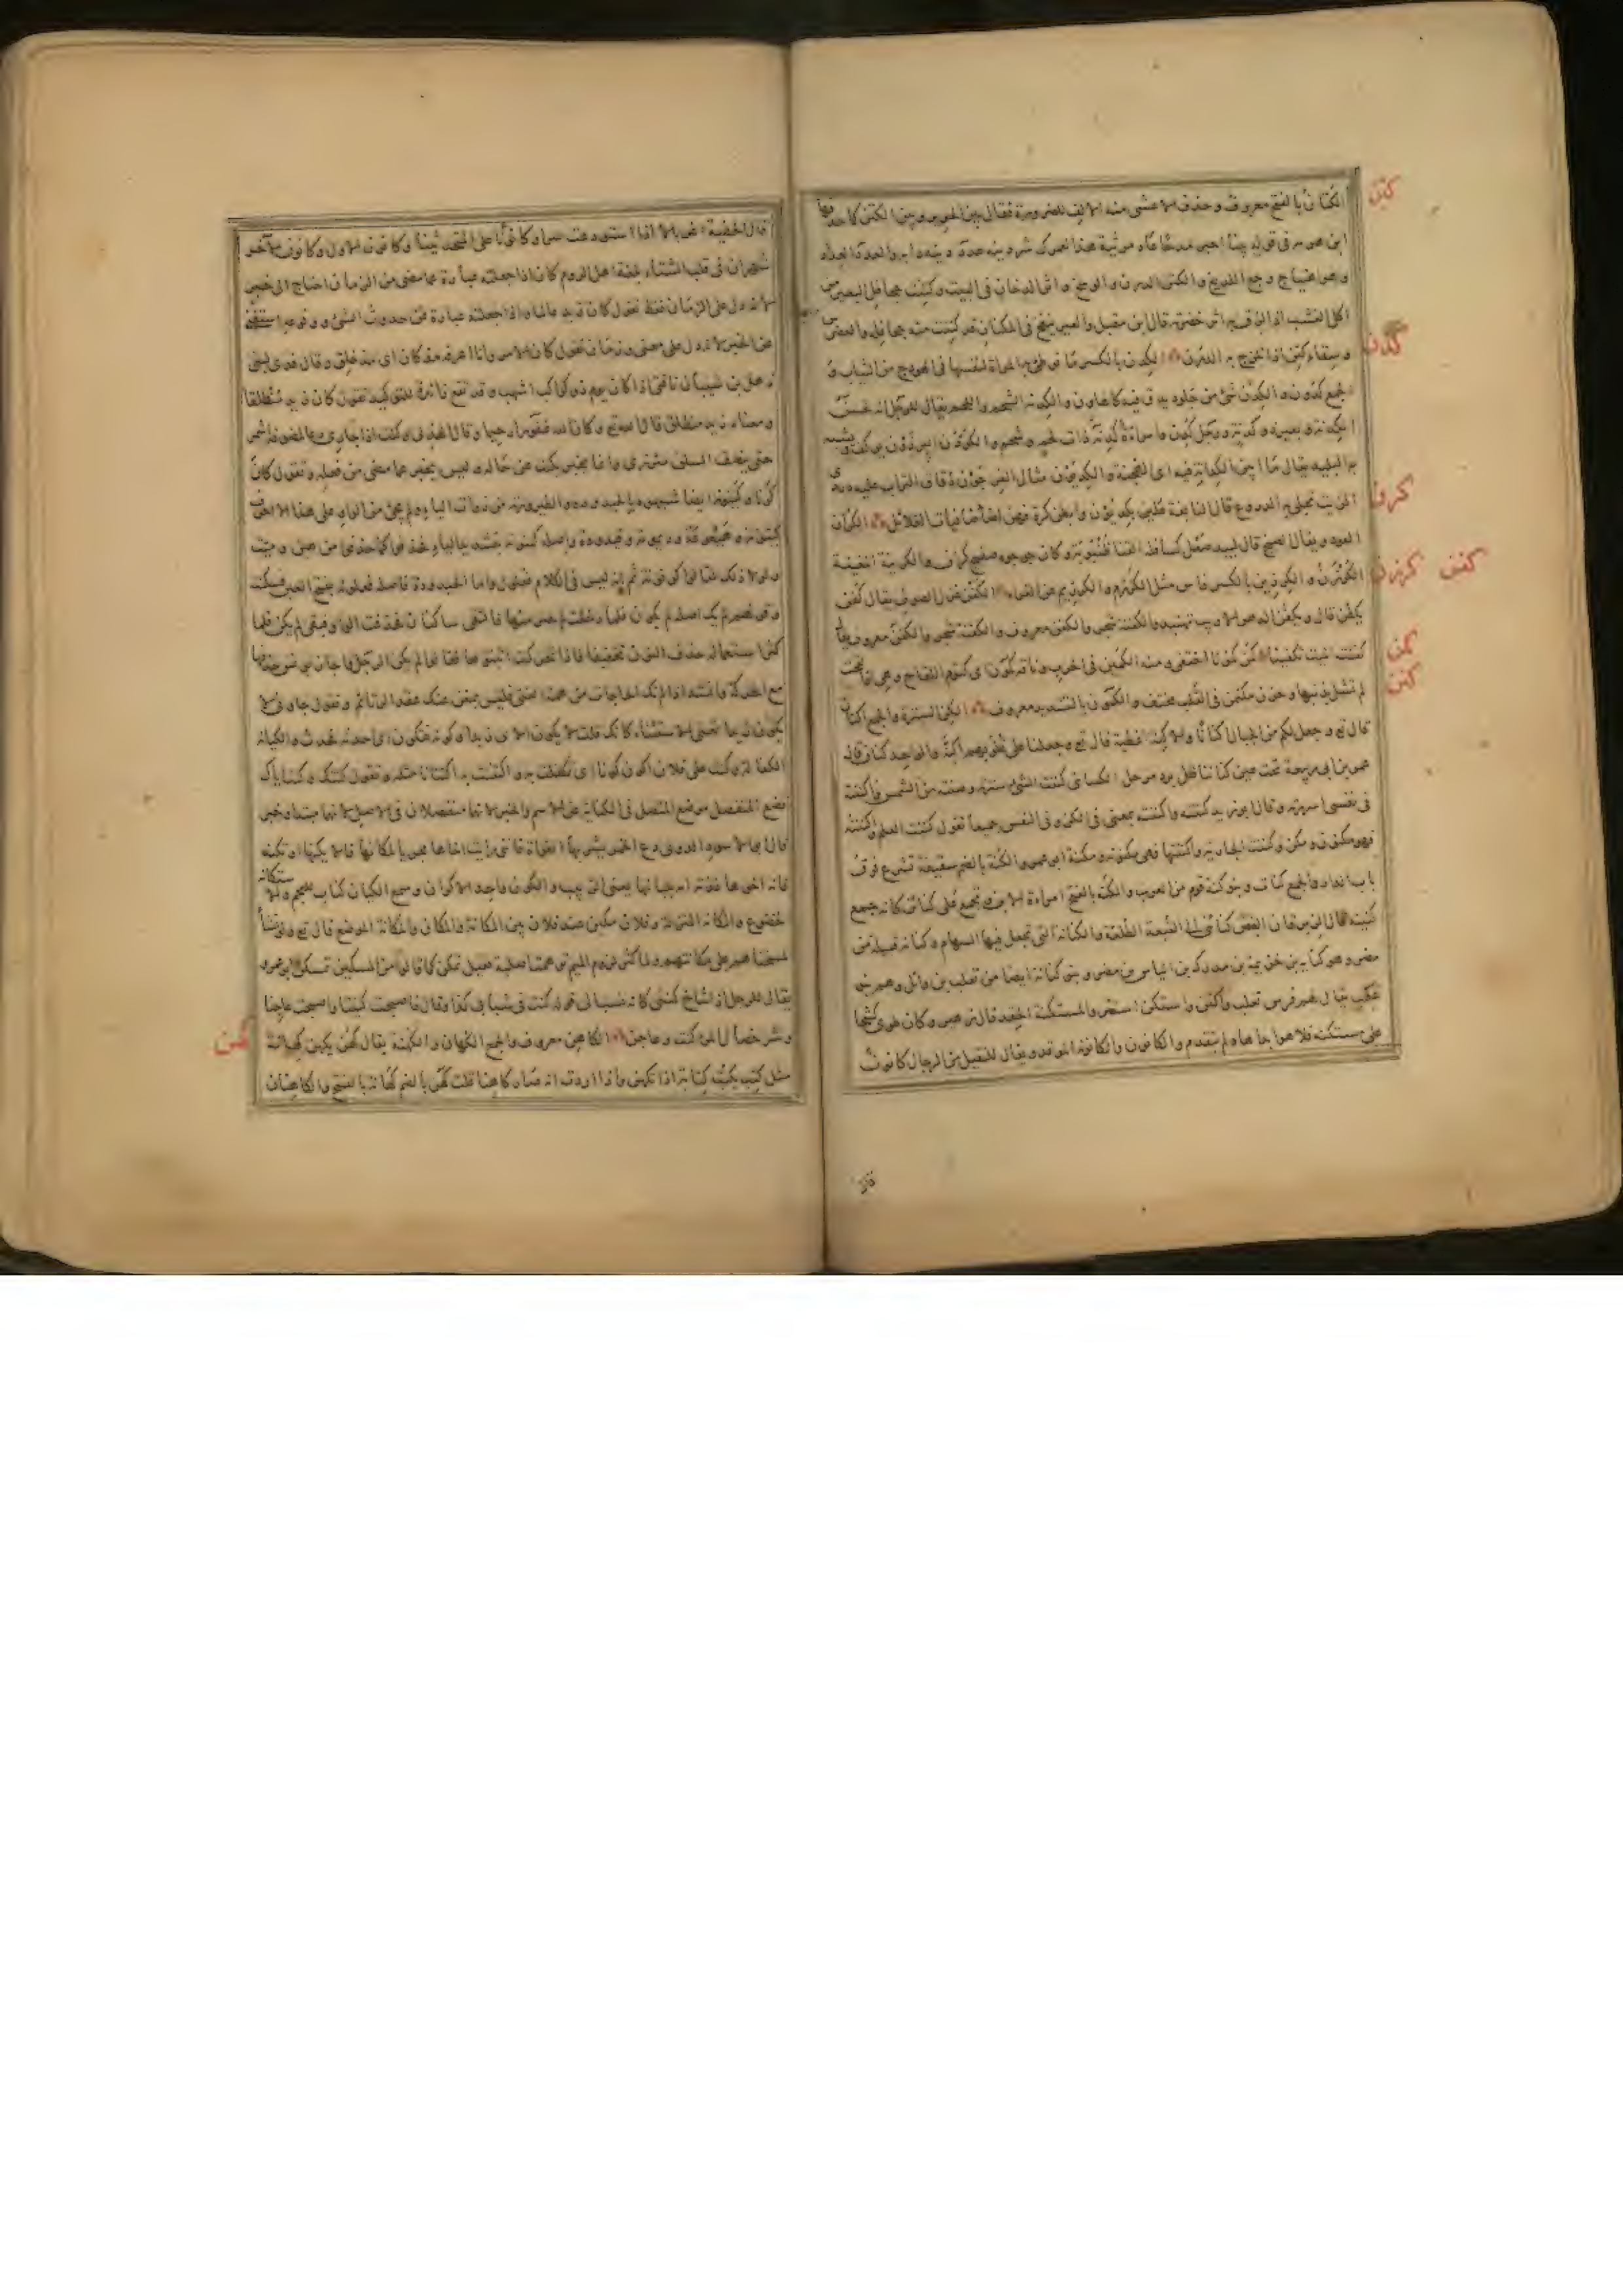 كتن
الكتان بالفتح معروف وحذف الاعشى منه الالف للضرورة فقال بين الحرير وبين الكتن كما حذفها
ابن هرمة في قوله
وهو اهتياج وجع اللديغ والكتن الدرن والوسخ واثر الدخان في البيت وكتنت جحافل البعير من
اكل العشب اذا لزق به اثر خضرته قال ابن مقبل والعير ينفخ في المكنان قد كتنت منه جحافله والعضرس
كدن
وسقاء كتن اذا تلزج به الدرن الكدن بالكسر ما توطئ به المراة لنفسها في الهودج من الثياب و
الجمع كدون والكدن شئ من جلود يدق فيه كالهاون والكدنة الشحم واللحم يقال للرجل انه لحسن
الكدنة وبعير ذو كدنة ورجل كدن وامراة كدنة ذات لحم وشحم والكودن البرذون يوكف ويشبه
به البليد يقال ما ابين الكدانة فيه اى الهجنة والكديون مثال الفرجون دقاق التراب عليه دردى
كرن
الزيت تجلى به الدروع قال النابغة علين بكديون وابطن كرة فهن اضاء صافيات الغلائل الكران
العود ويقال الصنج قال لبيد صعل كسافلة القنا وظنبوبه وكان جوجوه صفيح كران والكرينة المغنية
كرزن كفن
الكرزن والكرزين بالكسر فاس مثل الكرزم والكرزيم عن الفراء الكفن غزل الصوف يقال كفن
يكفن قال ويكفن الدهر الا ريث يهتبد والكفنة شجر والكفن معروف يقال
كمن
كفنت الميت تكفينا كمن كمونا اختفى ومنه الكمين في الحرب وناقة كمون اى كتوم اللقاح وهي اذا لقحت
كنن
لم تشل بذنبها وحزن مكتمن في القلب مختف والكمون بالتشديد معروف الكن السترة والجمع اكنان
قال تع وجعل لكم من الجبال اكنانا والاكنة الاغطية قال تع وجعلنا على قلوبهم اكنة والواحد كنان قال
عمر بن ابي ربيعة تحت عين كناننا ظل برد مرحل الكسائي كننت الشئ سترته وصنته من الشمس واكننته
في نفسي اسررته وقال ابو زيد كننته واكننته بمعنى في الكن وفي النفس جميعا تقول كننت العلم واكننته
فهو مكنون ومكن وكننت الجارية واكننتها فهي مكنونة ومكنة ابو عمرو والكنة بالضم سقيفة تشرع فوق
باب الدار والجمع كنات وبنو كنة قوم من العرب والكنة بالفتح امراة الابن وتجمع على كنائن كانه جمع
كنينة قال الزبرقان ابغض كنائني الى القبعة الطلعة والكنانة التي تجعل فيها السهام وكنانة قبيلة من
مضر وهو كنانة بن خزيمة بن مدركة بن الياس بن مضر وبنو كنانة ايضا من تغلب بن وائل وهم بنو
عكب يقال لهم قريش تغلب واكتن واستكن استتر والمستكنة الحقد قال زهير وكان طوى كشحا
على مستكنة فلا هو ابداها ولم يتقدم والكانون والكانونة الموقد ويقال للثقيل من الرجال كانون
قال
قال الحطيئة اغربالا اذا استودعت سرا وكانونا على المتحدثينا وكانون الاول وكانون الآخر
شهران في قلب الشتاء بلغة اهل الروم كان اذا جعلته عبارة عما مضى من الزمان احتاج الى خبر
لانه دل على الزمان فقط تقول كان زيد عالما واذا جعلته عبارة عن حدوث الشئ ووقوعه استغنى
عن الخبر لانه دل على معنى وزمان تقول كان الامر وانا اعرفه مذ كان اى مذ خلق وقال فدى لبني
ذهل بن شيبان ناقتي اذا كان يوم ذو كواكب اشهب وقد تقع زائدة للتوكيد تقول كان زيد منطلقا
ومعناه زيد منطلق قال الله تع وكان الله غفورا رحيما وقال الهذلي وكنت اذا جارى دعا لمضوفة اشمر
حتى ينصف الساق مئزرى وانما يخبر بكنت عن حاله وليس يخبر عما مضى من فعله وتقول كان
كونا وكينونة ايضا شبهوه بالحيدودة والطيرورة من ذوات الياء ولم يجئ من الواو على هذا الا احرف
كينونة وهيعوعة وديمومة وقيدودة واصله كينونة بتشديد الياء فحذفوا كما حذفوا من هين وميت
ولولا ذلك لقالوا كونونة ثم انه ليس في الكلام فعلول واما الحيدودة فاصله فعلولة بفتح العين فسكنت
وقولهم لم يك اصله لم يكون فلما دخلت لم جزمتها فالتقى ساكنان فحذفت الواو فبقي لم يكن فلما
كثر استعماله حذفوا النون تخفيفا فاذا تحركت اثبتوها فقالوا لم يكن الرجل واجاز يونس حذفها
مع الحركة وانشد اذا لم تك الحاجات من همة الفتى فليس بمغن عنك عقد الرتائم وتقول جاوني لا
يكون زيدا تعني الاستثناء كانك قلت لا يكون الاتي زيدا وكونه فتكون احدثه فحدث والكيانة
الكفالة وكنت على فلان اكون كونا اى تكفلت به واكتنت به اكتيانا مثله وتقول كنتك وكنت اياك
تضع المنفصل موضع المتصل في الكناية عن الاسم والخبر لانهما منفصلان في الاصل لانهما مبتدا وخبر
قال ابو الاسود الدولي دع الخمر يشربها الغواة فانني رايت اخاها مجزيا لمكانها فالا يكنها او تكنه
فانه اخوها غذته امه بلبانها يعني الزبيب والكون واحد الاكوان وسمع الكيان كتاب للعجم والاستكانة
الخضوع والمكانة المنزلة وفلان مكين عند فلان بين المكانة والمكان والمكانة الموضع قال تع ولو نشاء
لمسخناهم على مكانتهم ولما كثر لزوم الميم توهمت اصلية فقيل تمكن كما قالوا من المسكين تمسكن ابو عمرو
يقال للرجل اذا شاخ كنتي كانه نسب الى قوله كنت في شبابي كذا وقال فاصبحت كنتيا واصبحت عاجنا
كهن
وشر خصال المرء كنت وعاجن الكاهن معروف والجمع الكهان والكهنة يقال كهن يكهن كهانة
مثل كتب يكتب كتابة اذا تكهن واذا اردت انه صار كاهنا قلت كهن بالضم كهانة بالفتح والكاهنان